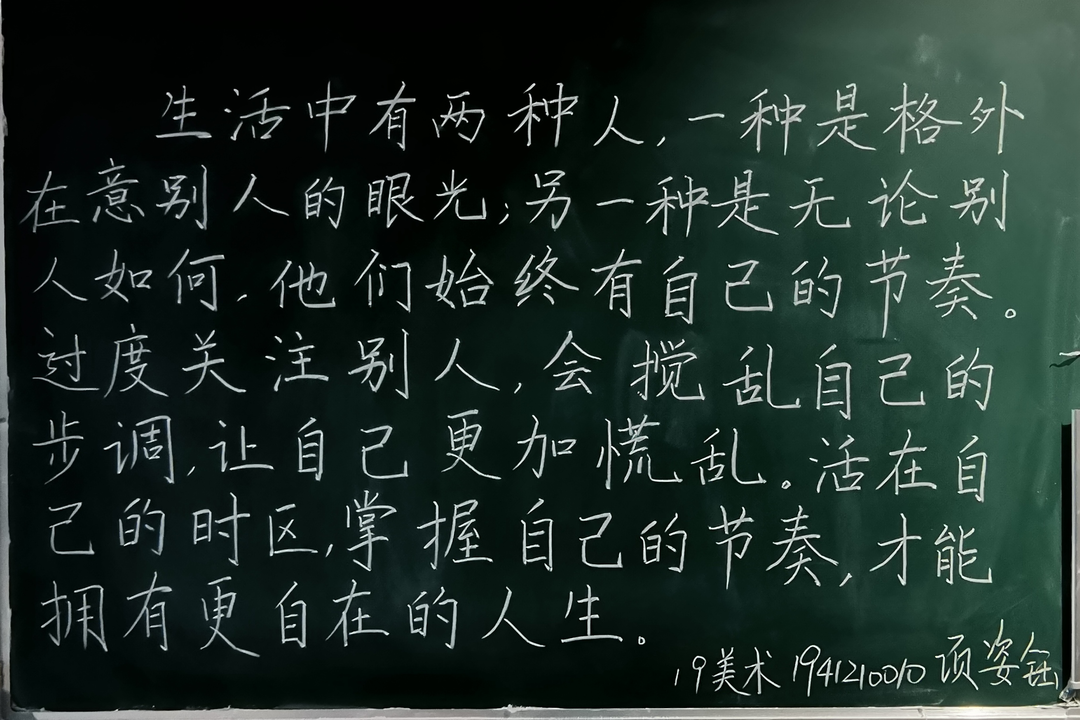 生活中有两种人,一种是格外
在意别人的眼光;另一种是无论别
人如何,他们始终有自己的节奏。
过度关注别人,会搅乱自己的
步调,让自己更加慌乱。活在自
己的时区,掌握自己的节奏,才能
拥有更自在的人生。
19美术 1941210010 项姿钰